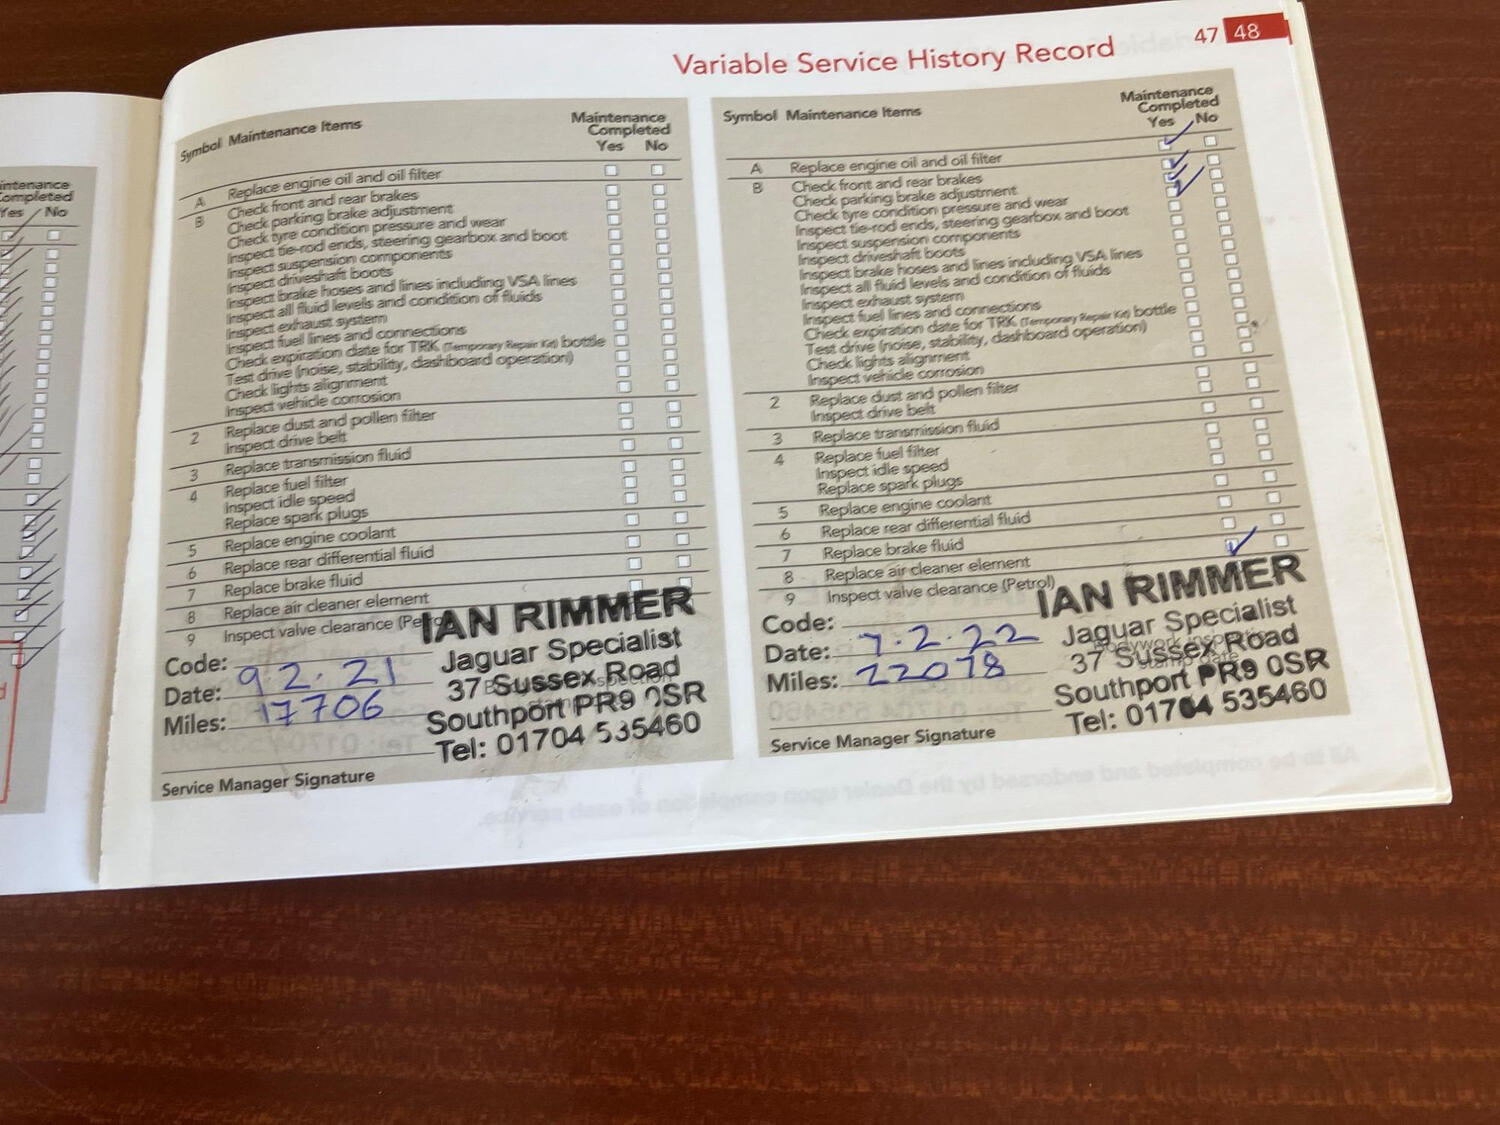 Variable Service History Record
47 48
intenance
ompleted
Yes No
Symbol Maintenance Items
Maintenance
Completed
Yes No
A Replace engine oil and oil filter
B Check front and rear brakes
Check parking brake adjustment
Check tyre condition pressure and wear
Inspect tie-rod ends, steering gearbox and boot
Inspect suspension components
Inspect driveshaft boots
Inspect brake hoses and lines including VSA lines
Inspect all fluid levels and condition of fluids
Inspect exhaust system
Inspect fuel lines and connections
Check expiration date for TRK (Temporary Repair Kit) bottle
Test drive (noise, stability, dashboard operation)
Check lights alignment
Inspect vehicle corrosion
2 Replace dust and pollen filter
Inspect drive belt
3 Replace transmission fluid
4 Replace fuel filter
Inspect idle speed
Replace spark plugs
5 Replace engine coolant
6 Replace rear differential fluid
7 Replace brake fluid
8 Replace air cleaner element
9 Inspect valve clearance (Petro
IAN RIMMER
Jaguar Specialist
37 Sussex Road
Southport PR9 0SR
Tel: 01704 535460
Code:
Date: 9 2 . 21
Miles: 17706
Service Manager Signature
Symbol Maintenance Items
Maintenance
Completed
Yes No
A Replace engine oil and oil filter
B Check front and rear brakes
Check parking brake adjustment
Check tyre condition pressure and wear
Inspect tie-rod ends, steering gearbox and boot
Inspect suspension components
Inspect driveshaft boots
Inspect brake hoses and lines including VSA lines
Inspect all fluid levels and condition of fluids
Inspect exhaust system
Inspect fuel lines and connections
Check expiration date for TRK (Temporary Repair Kit) bottle
Test drive (noise, stability, dashboard operation)
Check lights alignment
Inspect vehicle corrosion
2 Replace dust and pollen filter
Inspect drive belt
3 Replace transmission fluid
4 Replace fuel filter
Inspect idle speed
Replace spark plugs
5 Replace engine coolant
6 Replace rear differential fluid
7 Replace brake fluid
8 Replace air cleaner element
9 Inspect valve clearance (Petrol)
IAN RIMMER
Jaguar Specialist
37 Sussex Road
Southport PR9 0SR
Tel: 01704 535460
Bodywork inspection
stamp date
Code:
Date: 7.2.22
Miles: 22078
Service Manager Signature